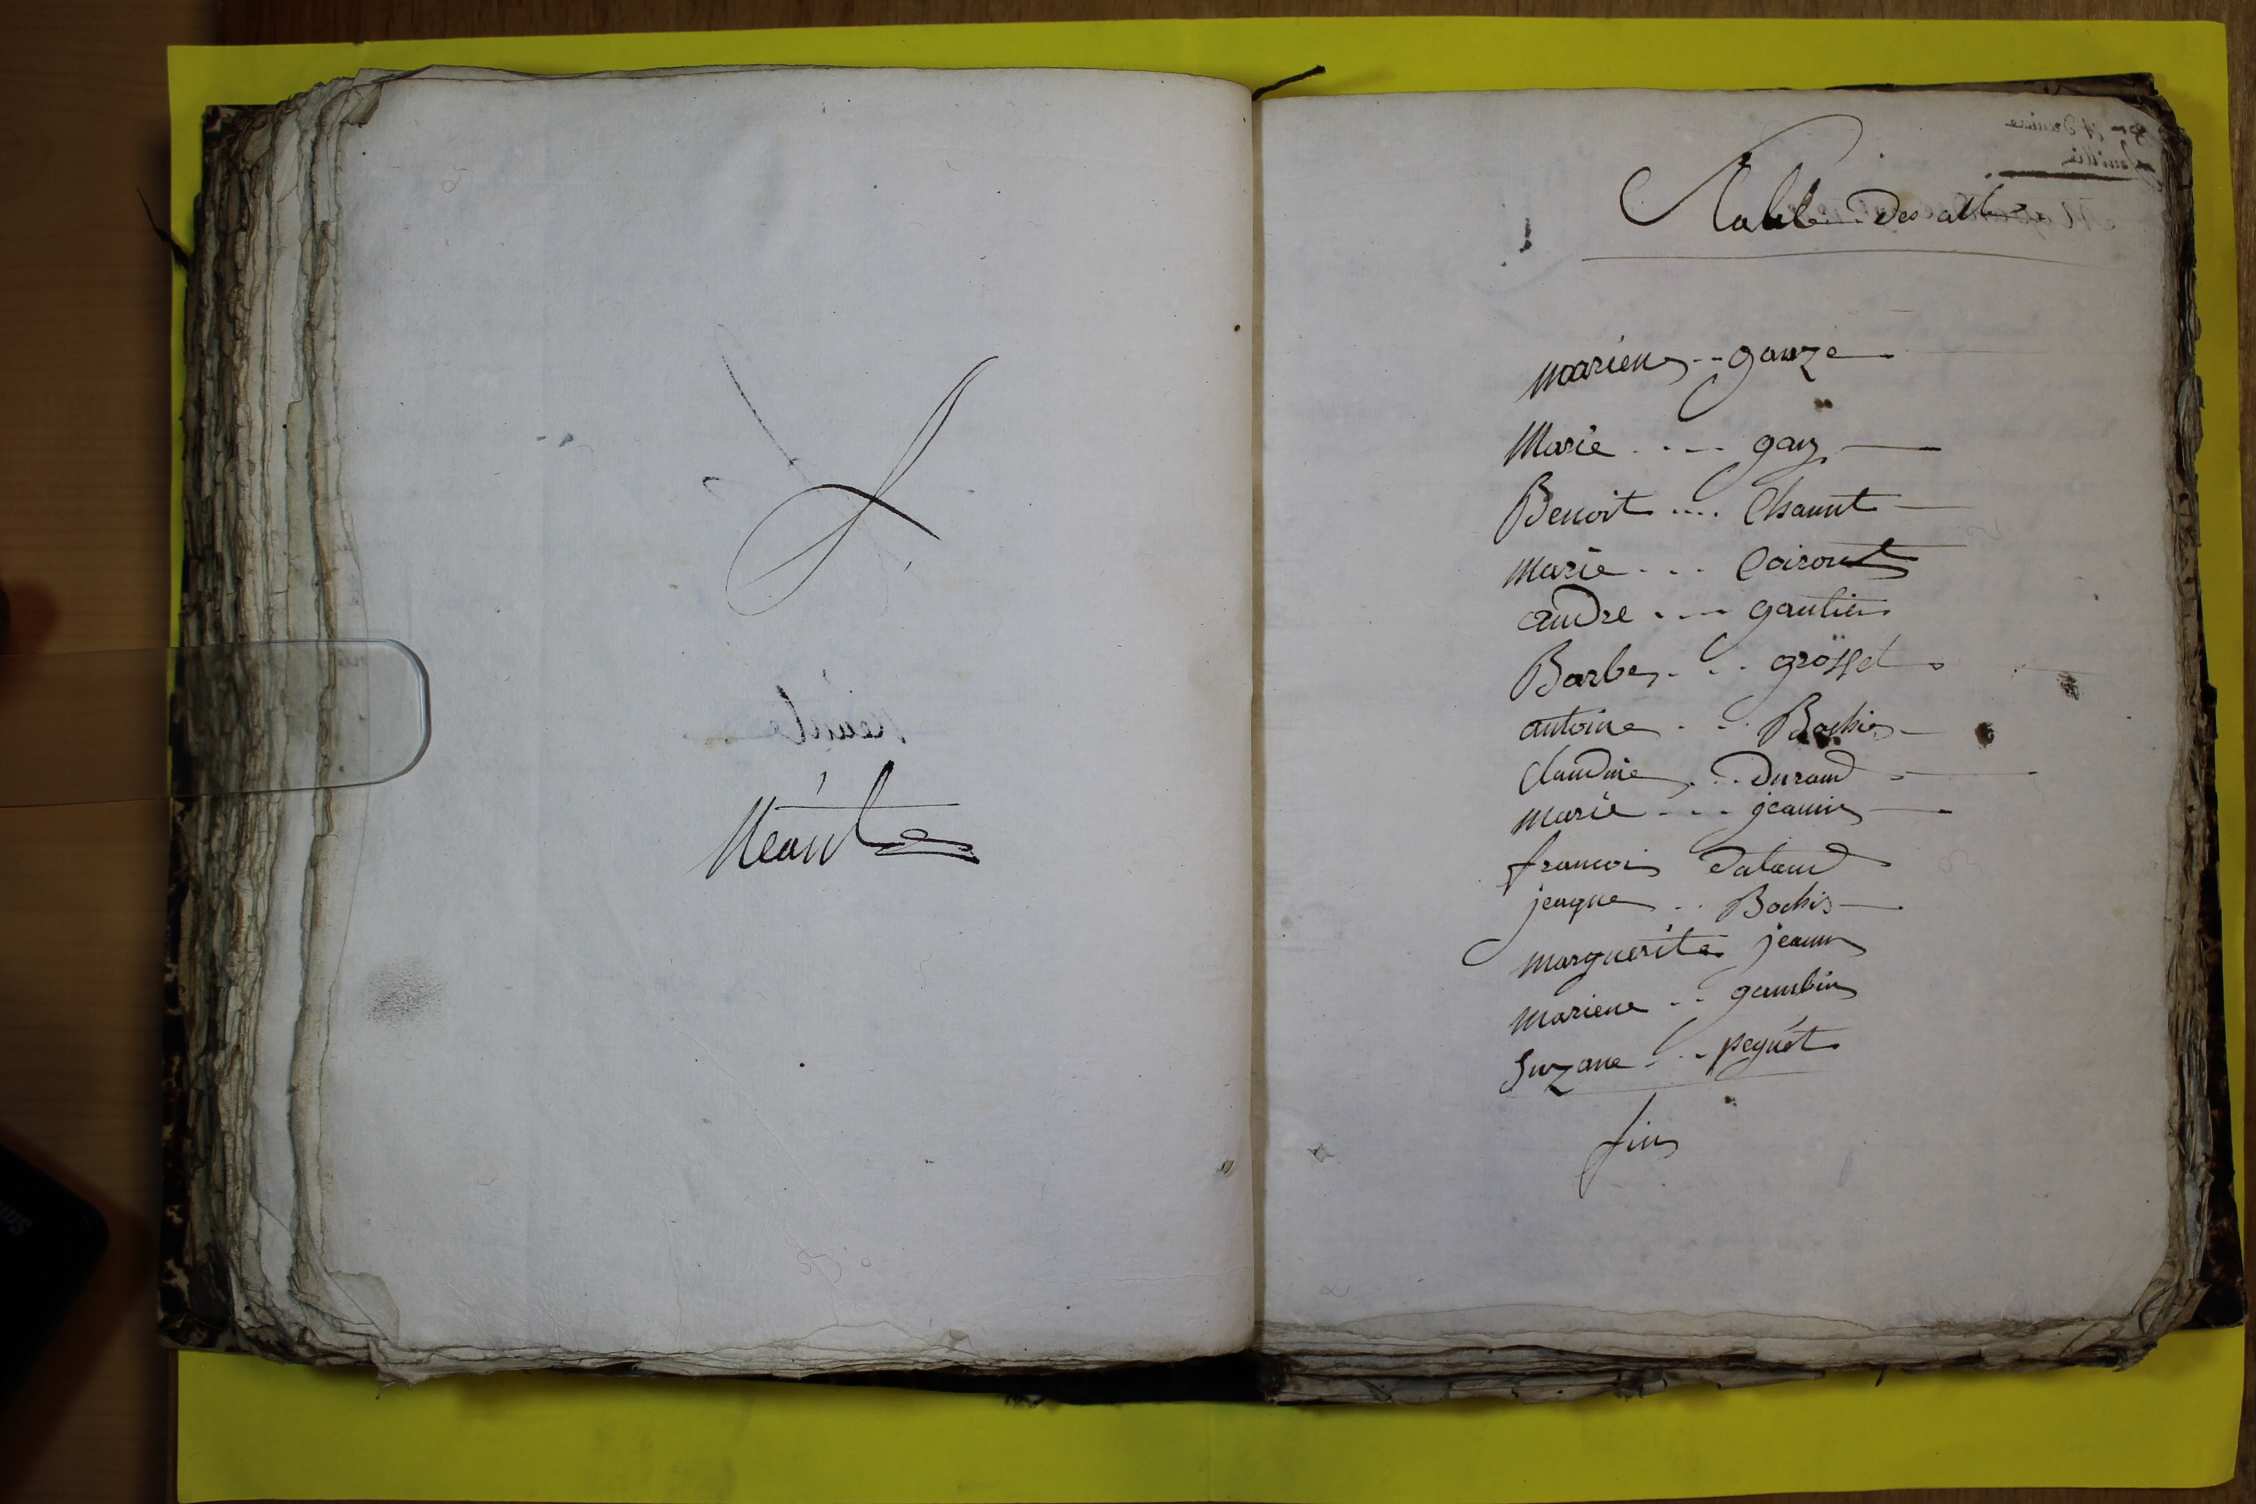 Néant
Table des actes
marien -- ganze
Marie . . -- gay
Benoit .... Chaunt
Marie . . . Coiront
andre . -- gautier
Barbe . . . grosset
antoine . . . Bochis
Claudine . . . Durand
Marie . . . jeanin
francois Dataud
jeaque . . Bochis
marguerite jeann
Mariene . . gambin
Suzane . . . peguét
fin